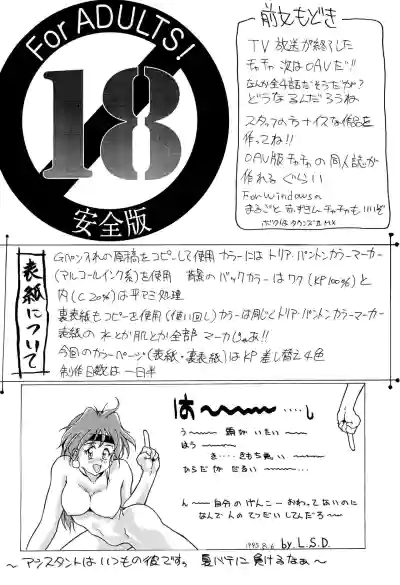 For ADULTS!
18
安全版
前文もどき
TV放送が終了した
チャチャ 次はOAVだ!!
なんか全4話だそうだが?
どうなるんだろうね
スタッフの方ナイスな作品を
作ってね!!
OAV版チャチャの同人誌が
作れるぐらい
For Windowsの
まるごと赤ずきんチャチャもいいぞ
ボクはタウンズⅡMX
表紙について
Gペン入れの原稿をコピーして使用 カラーにはトリア・パントンカラーマーカー
(アルコールインク系)を使用 背景のバックカラーはワク(KP100%)と
内(C20%)は平アミ処理
裏表紙もコピーを使用(使い回し)カラーは同じくトリア・パントンカラーマーカー
表紙の水とか肌とか全部マーカーじゃあ!!
今回のカラーページ(表紙・裏表紙)はKP差し替え4色
制作日数は一日半
は〜〜〜‥‥し
う〜〜 頭がいたい‥‥
ほう
き‥‥きもち悪い
からだがだるい‥‥
ん〜 自分のゲンコーおわってないのに
なんで人のてつだいしてんだろ〜
1995.8.6 by L.S.D.
〜アシスタントはいつもの彼ですっ 夏バテに負けるなぁ〜